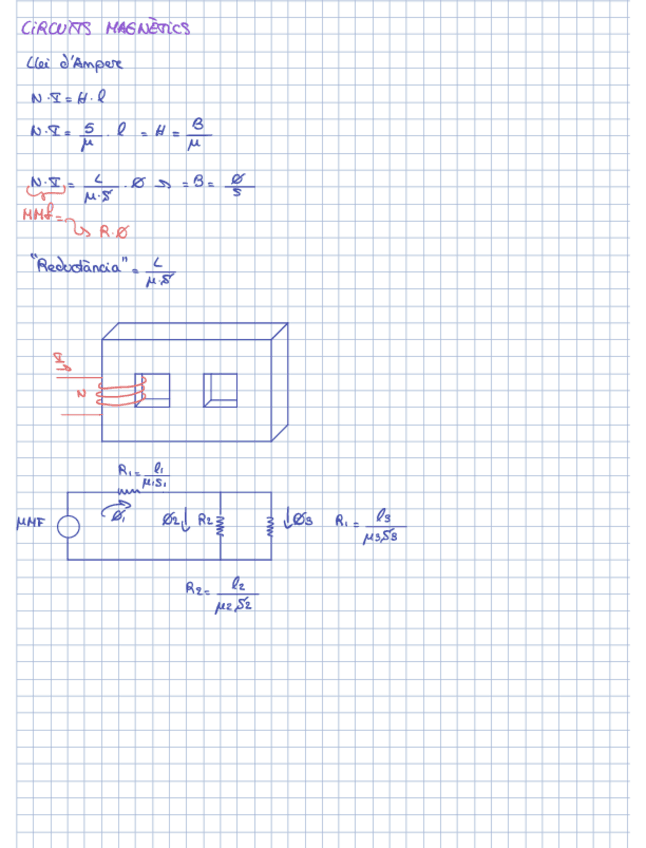 CIRCUITS MAGNÈTICS
Llei d'Ampere
N·I = H·l
N·I = B/μ · l = H = B/μ
N·I = L/μ·S · Ø → = B = Ø/S
MMf = → R·Ø
"Reductància" = L/μ·S
I
N
R1 = l1/μ1S1
MMF Ø1 Ø2 R2 Ø3 R1 = l3/μ3S3
R2 = l2/μ2S2